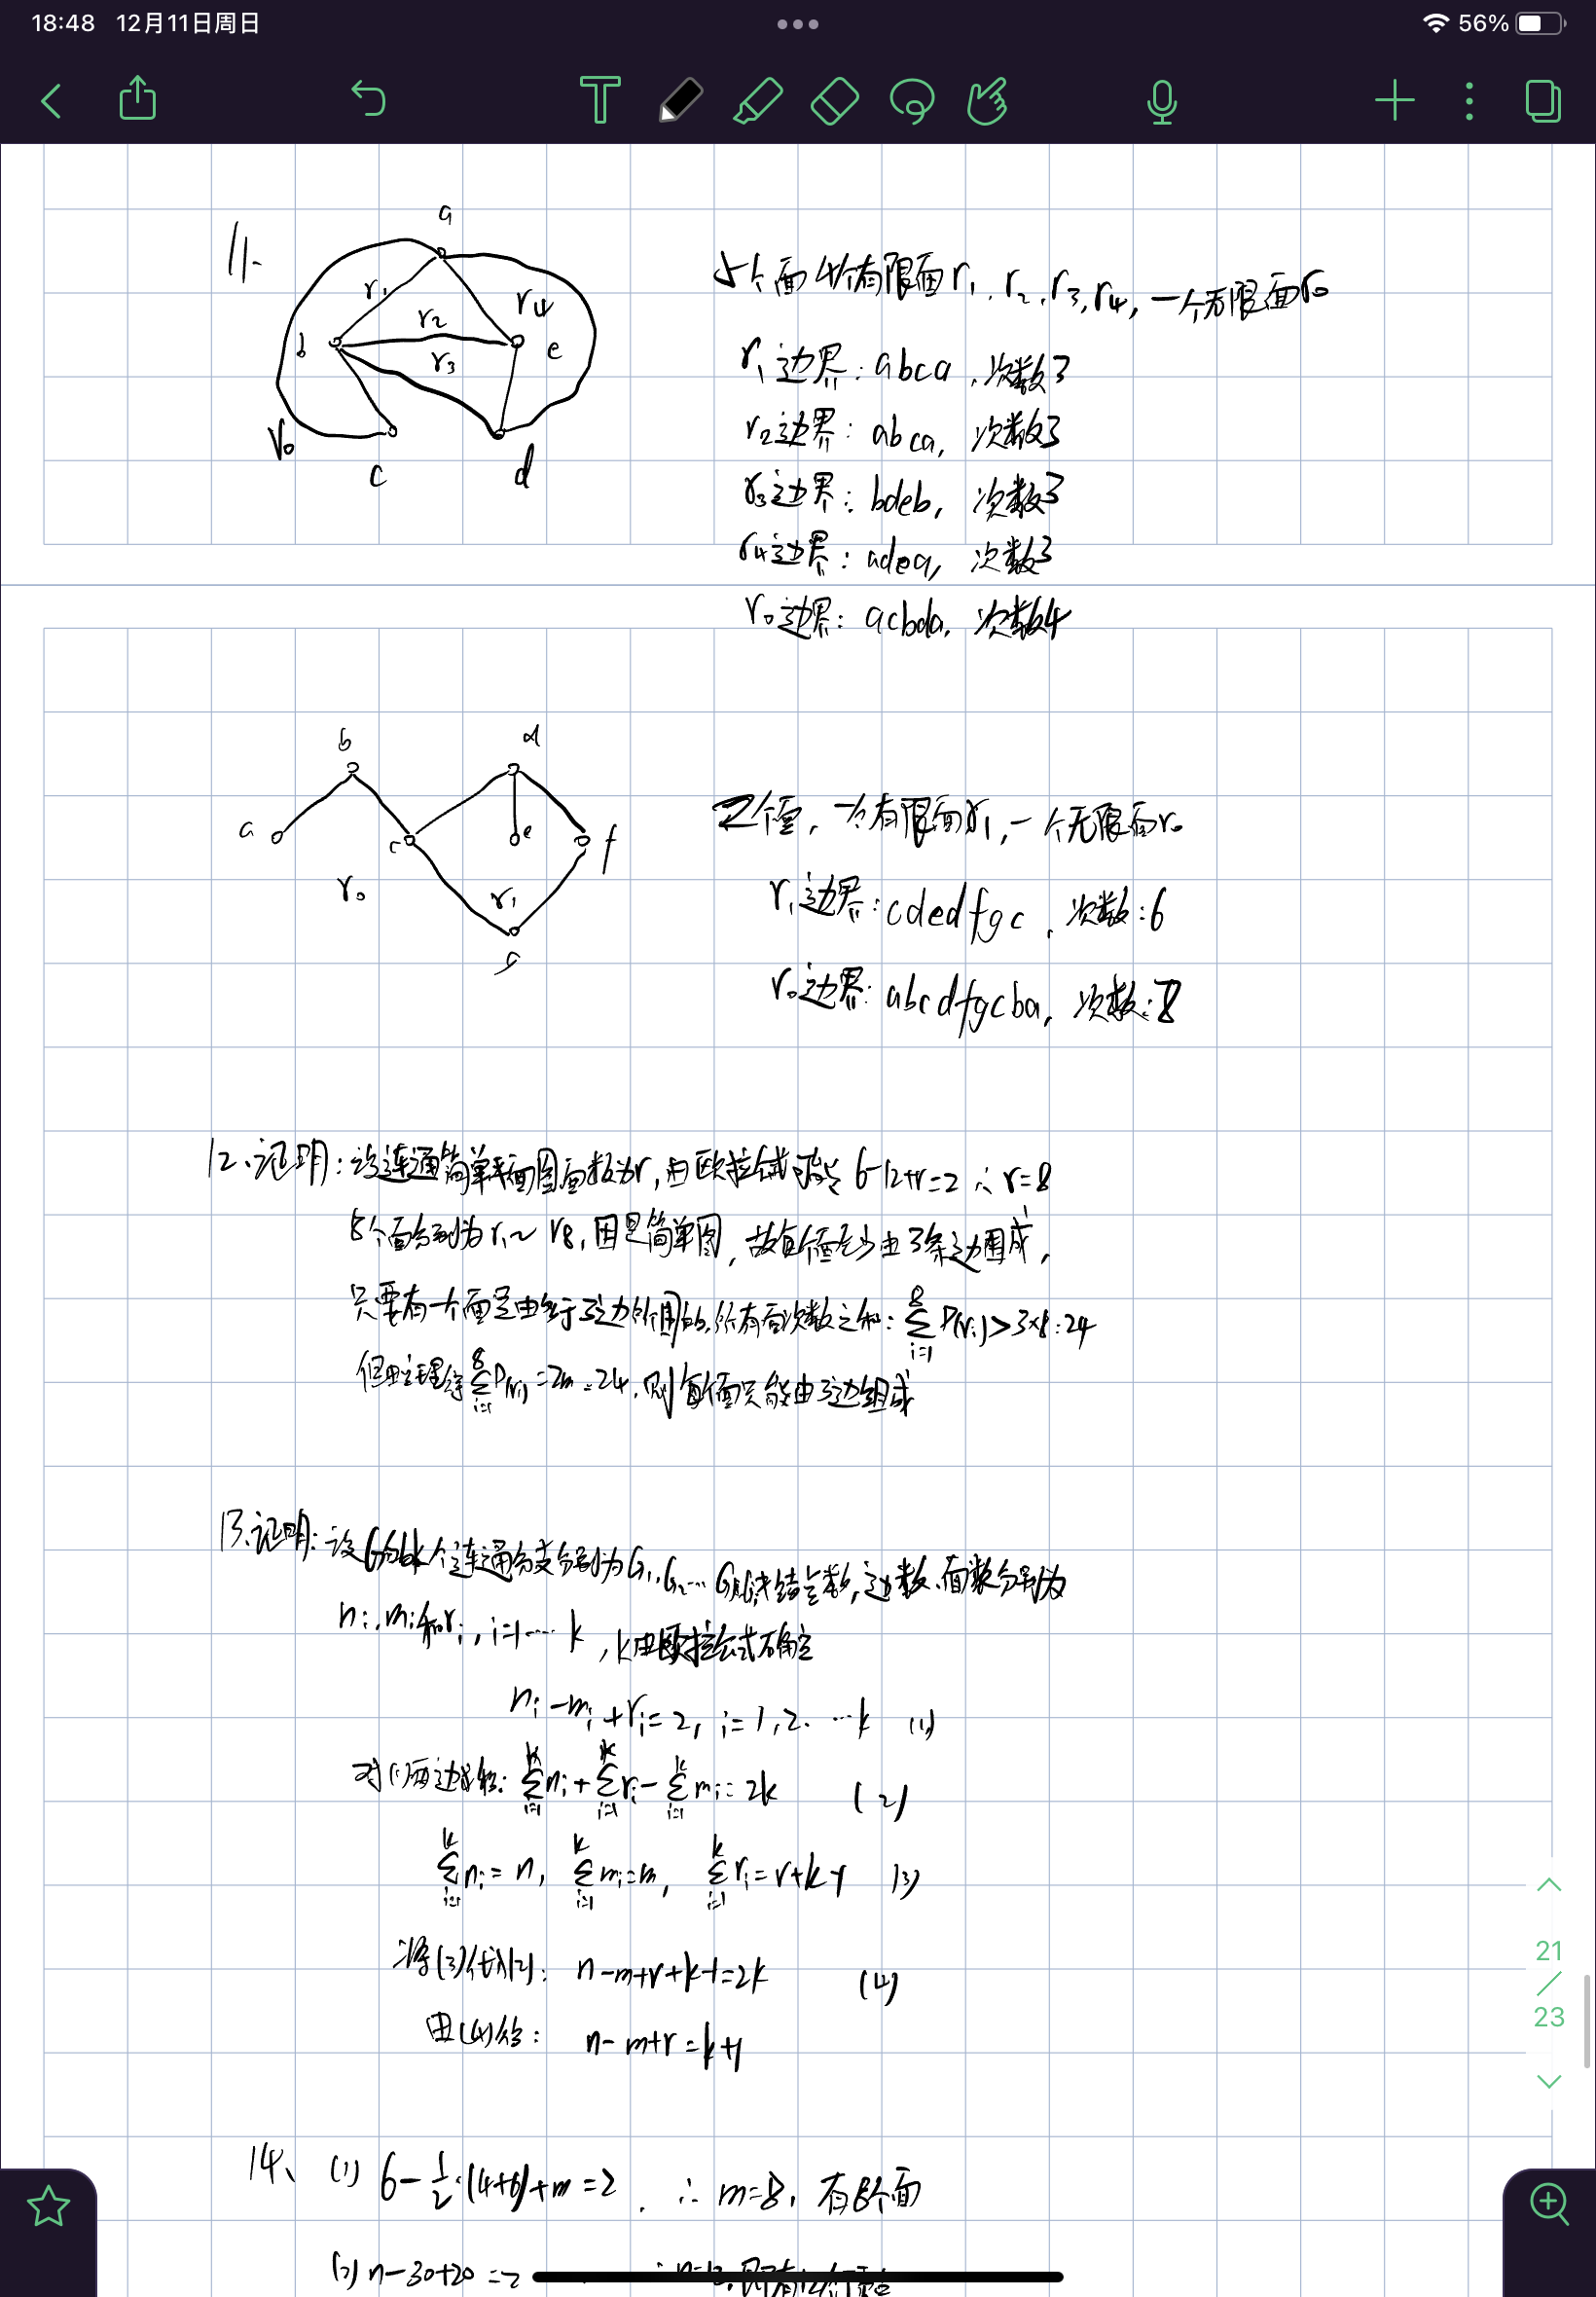 18:48 12月11日周日
56%
11.
a
r₁
r₂
r₄
b
r₃
e
r₀
c
d
5个面 4个有限面r₁, r₂, r₃, r₄, 一个无限面r₀
r₁边界: abca, 次数3
r₂边界: abca, 次数3
r₃边界: bdeb, 次数3
r₄边界: adea, 次数3
r₀边界: acbda, 次数4
b
d
a
c
e
f
r₀
r₁
g
2个面, 一个有限面r₁, 一个无限面r₀
r₁边界: cdedfgc, 次数:6
r₀边界: abcdfgcba, 次数:8
12、证明: 设连通简单平面图面数为r, 由欧拉公式 6-12+r=2 ∴ r=8
8个面分别为r₁~r₈, 因是简单图, 故每个面至少由3条边围成,
只要有一个面是由多于3边所围的, 所有面次数之和: ∑ᵢ₌₁⁸ D(rᵢ)>3×8=24
但由定理得 ∑ᵢ₌₁⁸ D(rᵢ)=2m=24, 则每个面只能由3边组成
13.证明: 设G的k个连通分支分别为G₁, G₂… 结点数, 边数, 面数分别为
nᵢ, mᵢ和rᵢ, i=1…k, 由欧拉公式
nᵢ-mᵢ+rᵢ=2, i=1,2.…k (1)
对(1)两边求和: ∑ᵢ₌₁ᵏ nᵢ+∑ᵢ₌₁ᵏ rᵢ-∑ᵢ₌₁ᵏ mᵢ=2k (2)
∑ᵢ₌₁ᵏ nᵢ=n, ∑ᵢ₌₁ᵏ mᵢ=m, ∑ᵢ₌₁ᵏ rᵢ=r+k-1 (3)
将(3)代入(2): n-m+r+k-1=2k (4)
由(4)得: n-m+r=k+1
14、(1) 6-½·(4+6)+m=2. ∴ m=8, 有8个面
(2) n-30+20=2
21
/
23